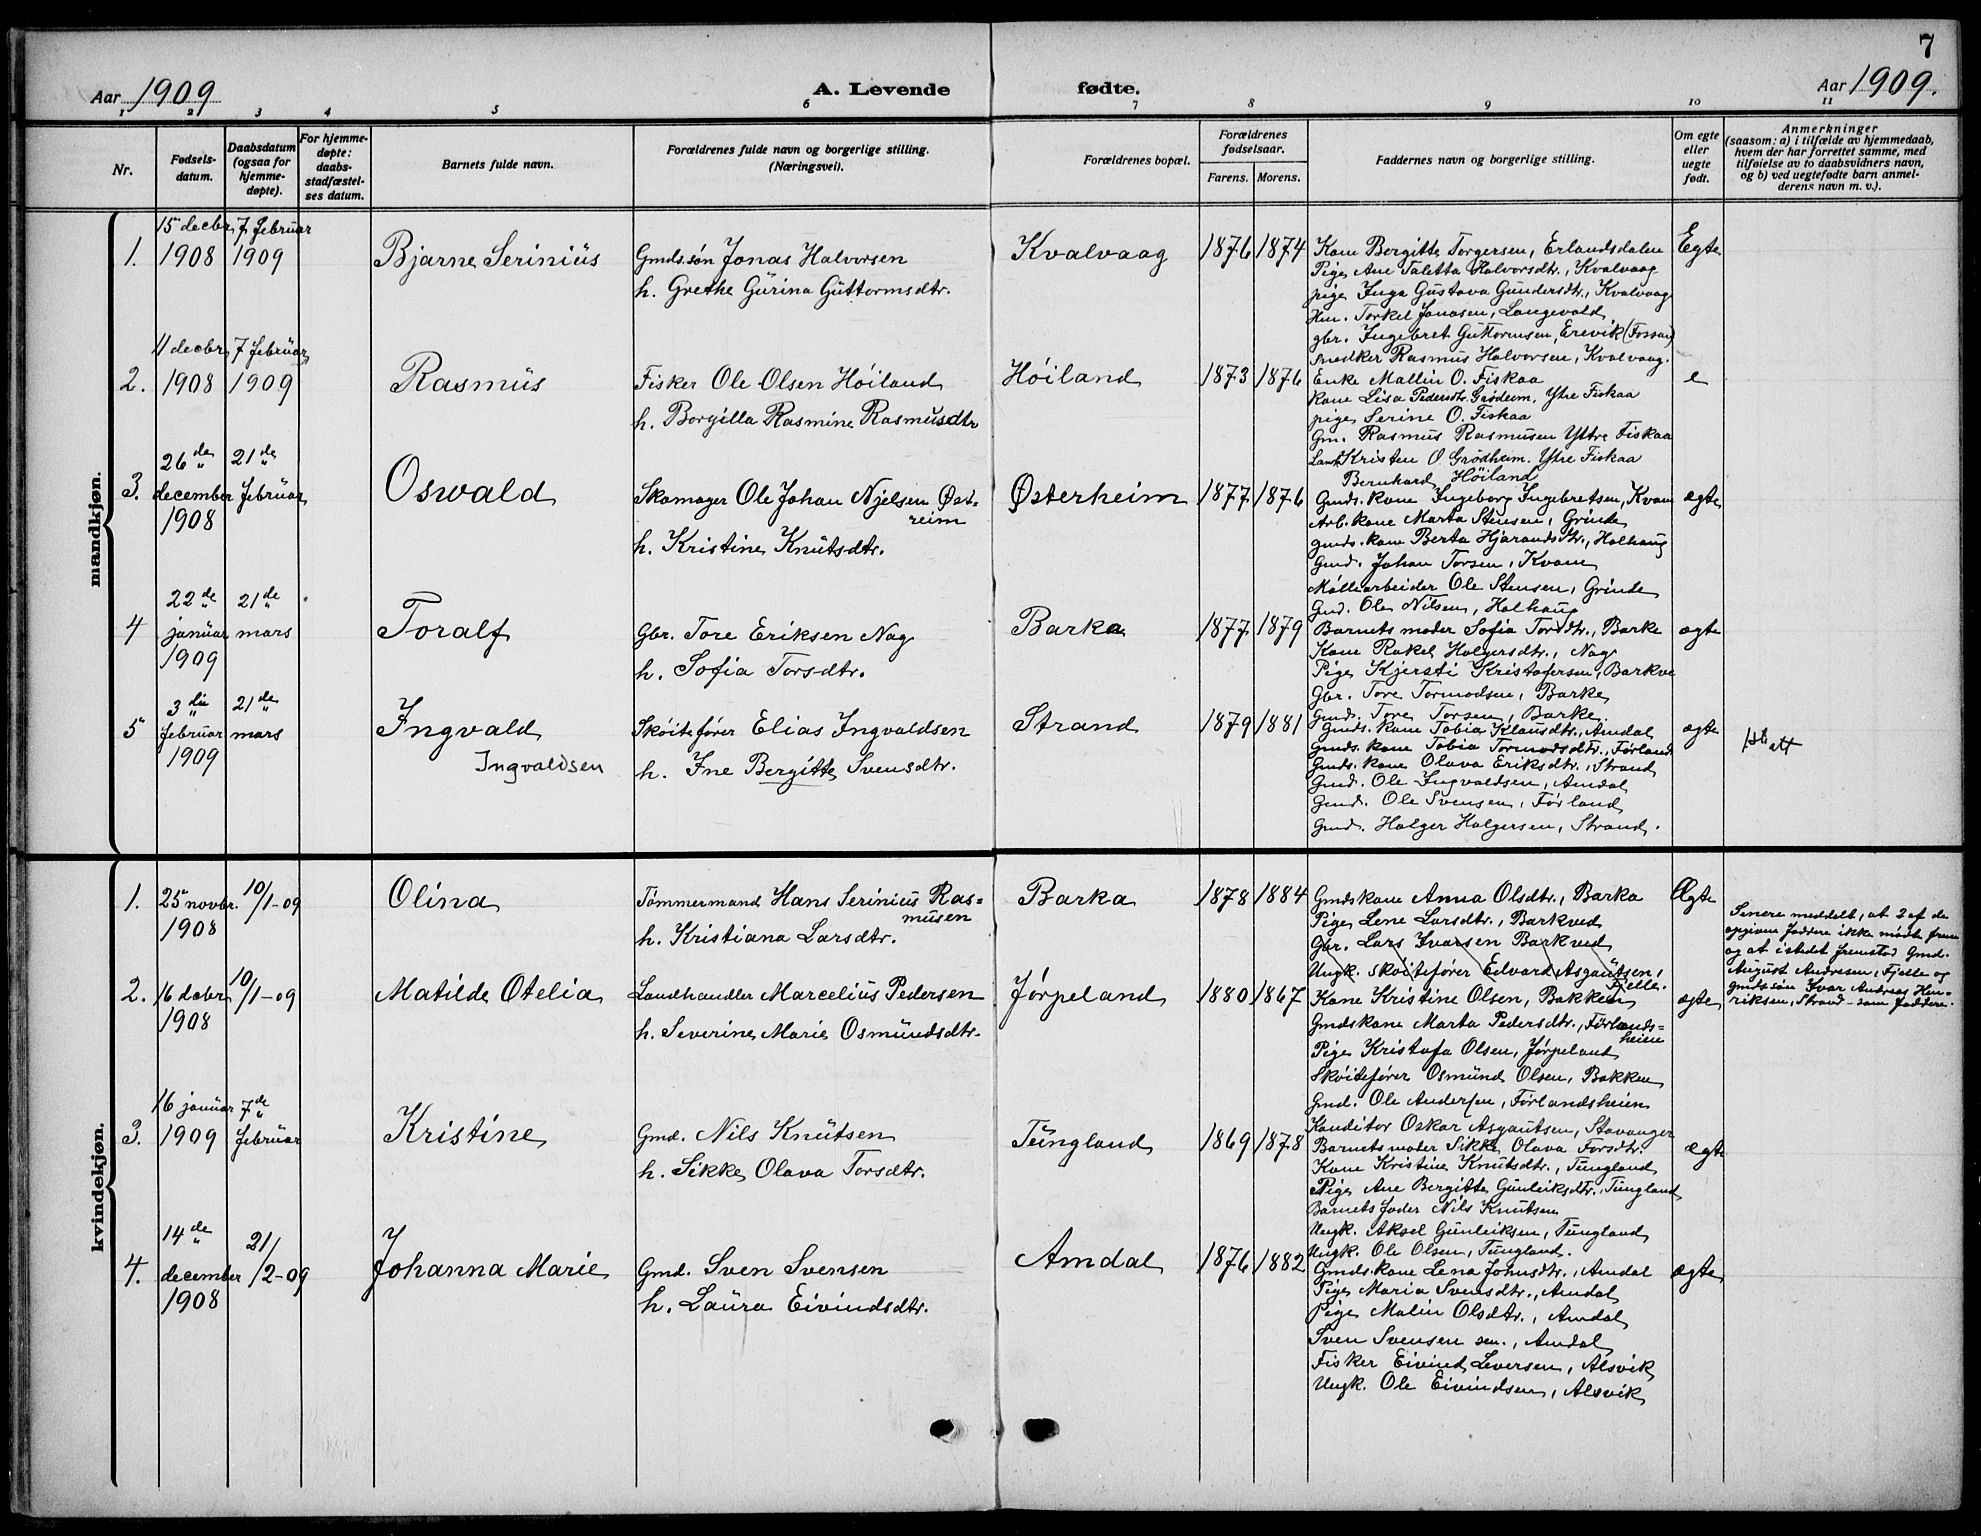 7
Aar 1909
A. Levende fødte.
Aar 1909.
1 2 3 4 5 6 7 8 9 10 11
Nr.
Fødsels-
datum.
Daabsdatum
(ogsaa for
hjemme-
døpte).
For hjemme-
døpte:
daabs-
stadfæstel-
ses datum.
Barnets fulde navn.
Forældrenes fulde navn og borgerlige stilling.
(Næringsvei).
Forældrenes bopæl.
Forældrenes
fødselsaar.
Farens. Morens.
Faddernes navn og borgerlige stilling.
Om egte
eller
uegte
født.
Anmerkninger
(saasom: a) i tilfælde av hjemmedaab,
hvem der har forrettet samme, med
tilføielse av to daabsvidners navn,
og b) ved uegtefødte barn anmel-
derens navn m. v.).
mandkjøn.
1.
15 decbr
1908
7 februar
1909
Bjarne Serinius
Gmds.søn Jonas Halvorsen
h. Grethe Gurina Guttormsdtr.
Kvalvaag
1876 1874
Kone Bergitte Torgersen, Erlandsdalen
Pige Ane Taletta Halvorsdtr., Kvalvaag
pige Inga Gustava Gundersdtr., Kvalvaag
Torkel Jonasen, Langevald
gbr. Ingebret Guttormsen, Erevik (Fossan)
snedker Rasmus Halvorsen, Kvalvaag.
Egte
2.
11 decbr
1908
7 februar
1909
Rasmus
Fisker Ole Olsen Höiland
h. Borgilla Rasmine Rasmusdtr
Höiland
1873 1876
Enke Mallin O. Fiskaa
Kone Lisa Pedersdtr. Grødeim, Ytre Fiskaa
pige Serine O. Fiskaa
Gm. Rasmus Rasmusen Yttre Fiskaa
Kristen O. Grödheim. Ytre Fiskaa
Bernhard Höiland
e
3.
26de
december
1908
21de
februar
Oswald
Skomager Ole Johan Njelsen Øst-
reim
h. Kristine Knutsdtr.
Østerheim
1877 1876
Gmds. kone Ingeborg Ingebretsen, Kvam
Arb. kone Marta Stensen, Grinde
gmds. kone Berta Hjarandsdtr., Halhaug
Gmd. Johan Torsen, Kvam
Möllearbeider Ole Stensen, Grinde
Gmd. Ole Nilsen, Halhaug
ægte
4
22de
januar
1909
21de
mars
Toralf
Gbr. Tore Eriksen Nag
h. Sofia Torsdtr.
Barka
1877 1879
Barnets moder Sofia Torsdtr., Barke
Kone Rakel Holgersdtr., Nag
Pige Kjersti Kristofersen, Barkve
Gbr. Tore Tormodsen, Barke
Gmd. Tore Torsen, Barke.
ægte
5
3die
februar
1909
21de
mars
Ingvald
Ingvaldsen
Skøitefører Elias Ingvaldsen
h. Ine Bergitte Svensdtr.
Strand
1879 1881
Gmds. kone Tobia Klausdtr., Amdal
Gmds. kone Tobia Tormodsdtr., Førland
Gmds. kone Olava Eriksdtr., Strand
Gmd. Ole Ingvaldsen, Amdal
Gmd. Ole Svensen, Førland
Gmd. Holger Holgersen, Strand.
ægte
kvindekjøn.
1.
25 novbr.
1908
10/1-09
Olina
Tømmermand Hans Serinius Ras=
musen
h. Kristiana Larsdtr.
Barka
1878 1884
Gmdskone Anna Olsdtr., Barka
Pige Lene Larsdtr., Barkved
Gbr. Lars Ivarsen Barkved
Ungk. skøitefører Edvard Asgautsen,
Fjelle.
Ægte
Senere meddelt, at 2 af de
opgivne faddere ikke mødte frem
og at istedet fremstod Gmd.
August Andresen, Fjelle og
gmds.søn Ivar Andreas Hen-
riksen, Strand - som faddere.
2.
16 dcbr
1908
10/1-09
Matilde Otelia
Landhandler Marcelius Pedersen
h. Severine Marie Osmundsdtr.
Jørpeland
1880 1867
Kone Kristine Olsen, Bakken
Gmdskone Marta Pedersdtr., Førlands=
heien
Pige Kristofa Olsen, Jørpeland
Skøitefører Osmund Olsen, Bakken
Gmd. Ole Andersen, Førlandsheien
Konditor Oskar Asgautsen, Stavanger
ægte
3.
16 januar
1909
7de
februar
Kristine
Gmd. Nils Knutsen
h. Sikke Olava Torsdtr.
Tungland
1869 1878
Barnets moder Sikke Olava Torsdtr.
Kone Kristine Knutsdtr., Tungland
Pige Ane Bergitte Gunleiksdtr., Tungland
Barnets fader Nils Knutsen
Ungk. Aksel Gunleiksen, Tungland
Ungk. Ole Olsen, Tungland.
ægte
4.
14de
december
1908
21/2-09
Johanna Marie
Gmd. Sven Svensen
h. Laura Eivindsdtr.
Amdal
1876 1882
Gmds. kone Lena Johnsdtr., Amdal
Pige Maria Svensdtr., Amdal
Pige Malin Olsdtr., Amdal
Sven Svensen sen., Amdal
Fisker Eivind Leversen, Alsvik
Ungk. Ole Eivindsen, Alsvik
ægte